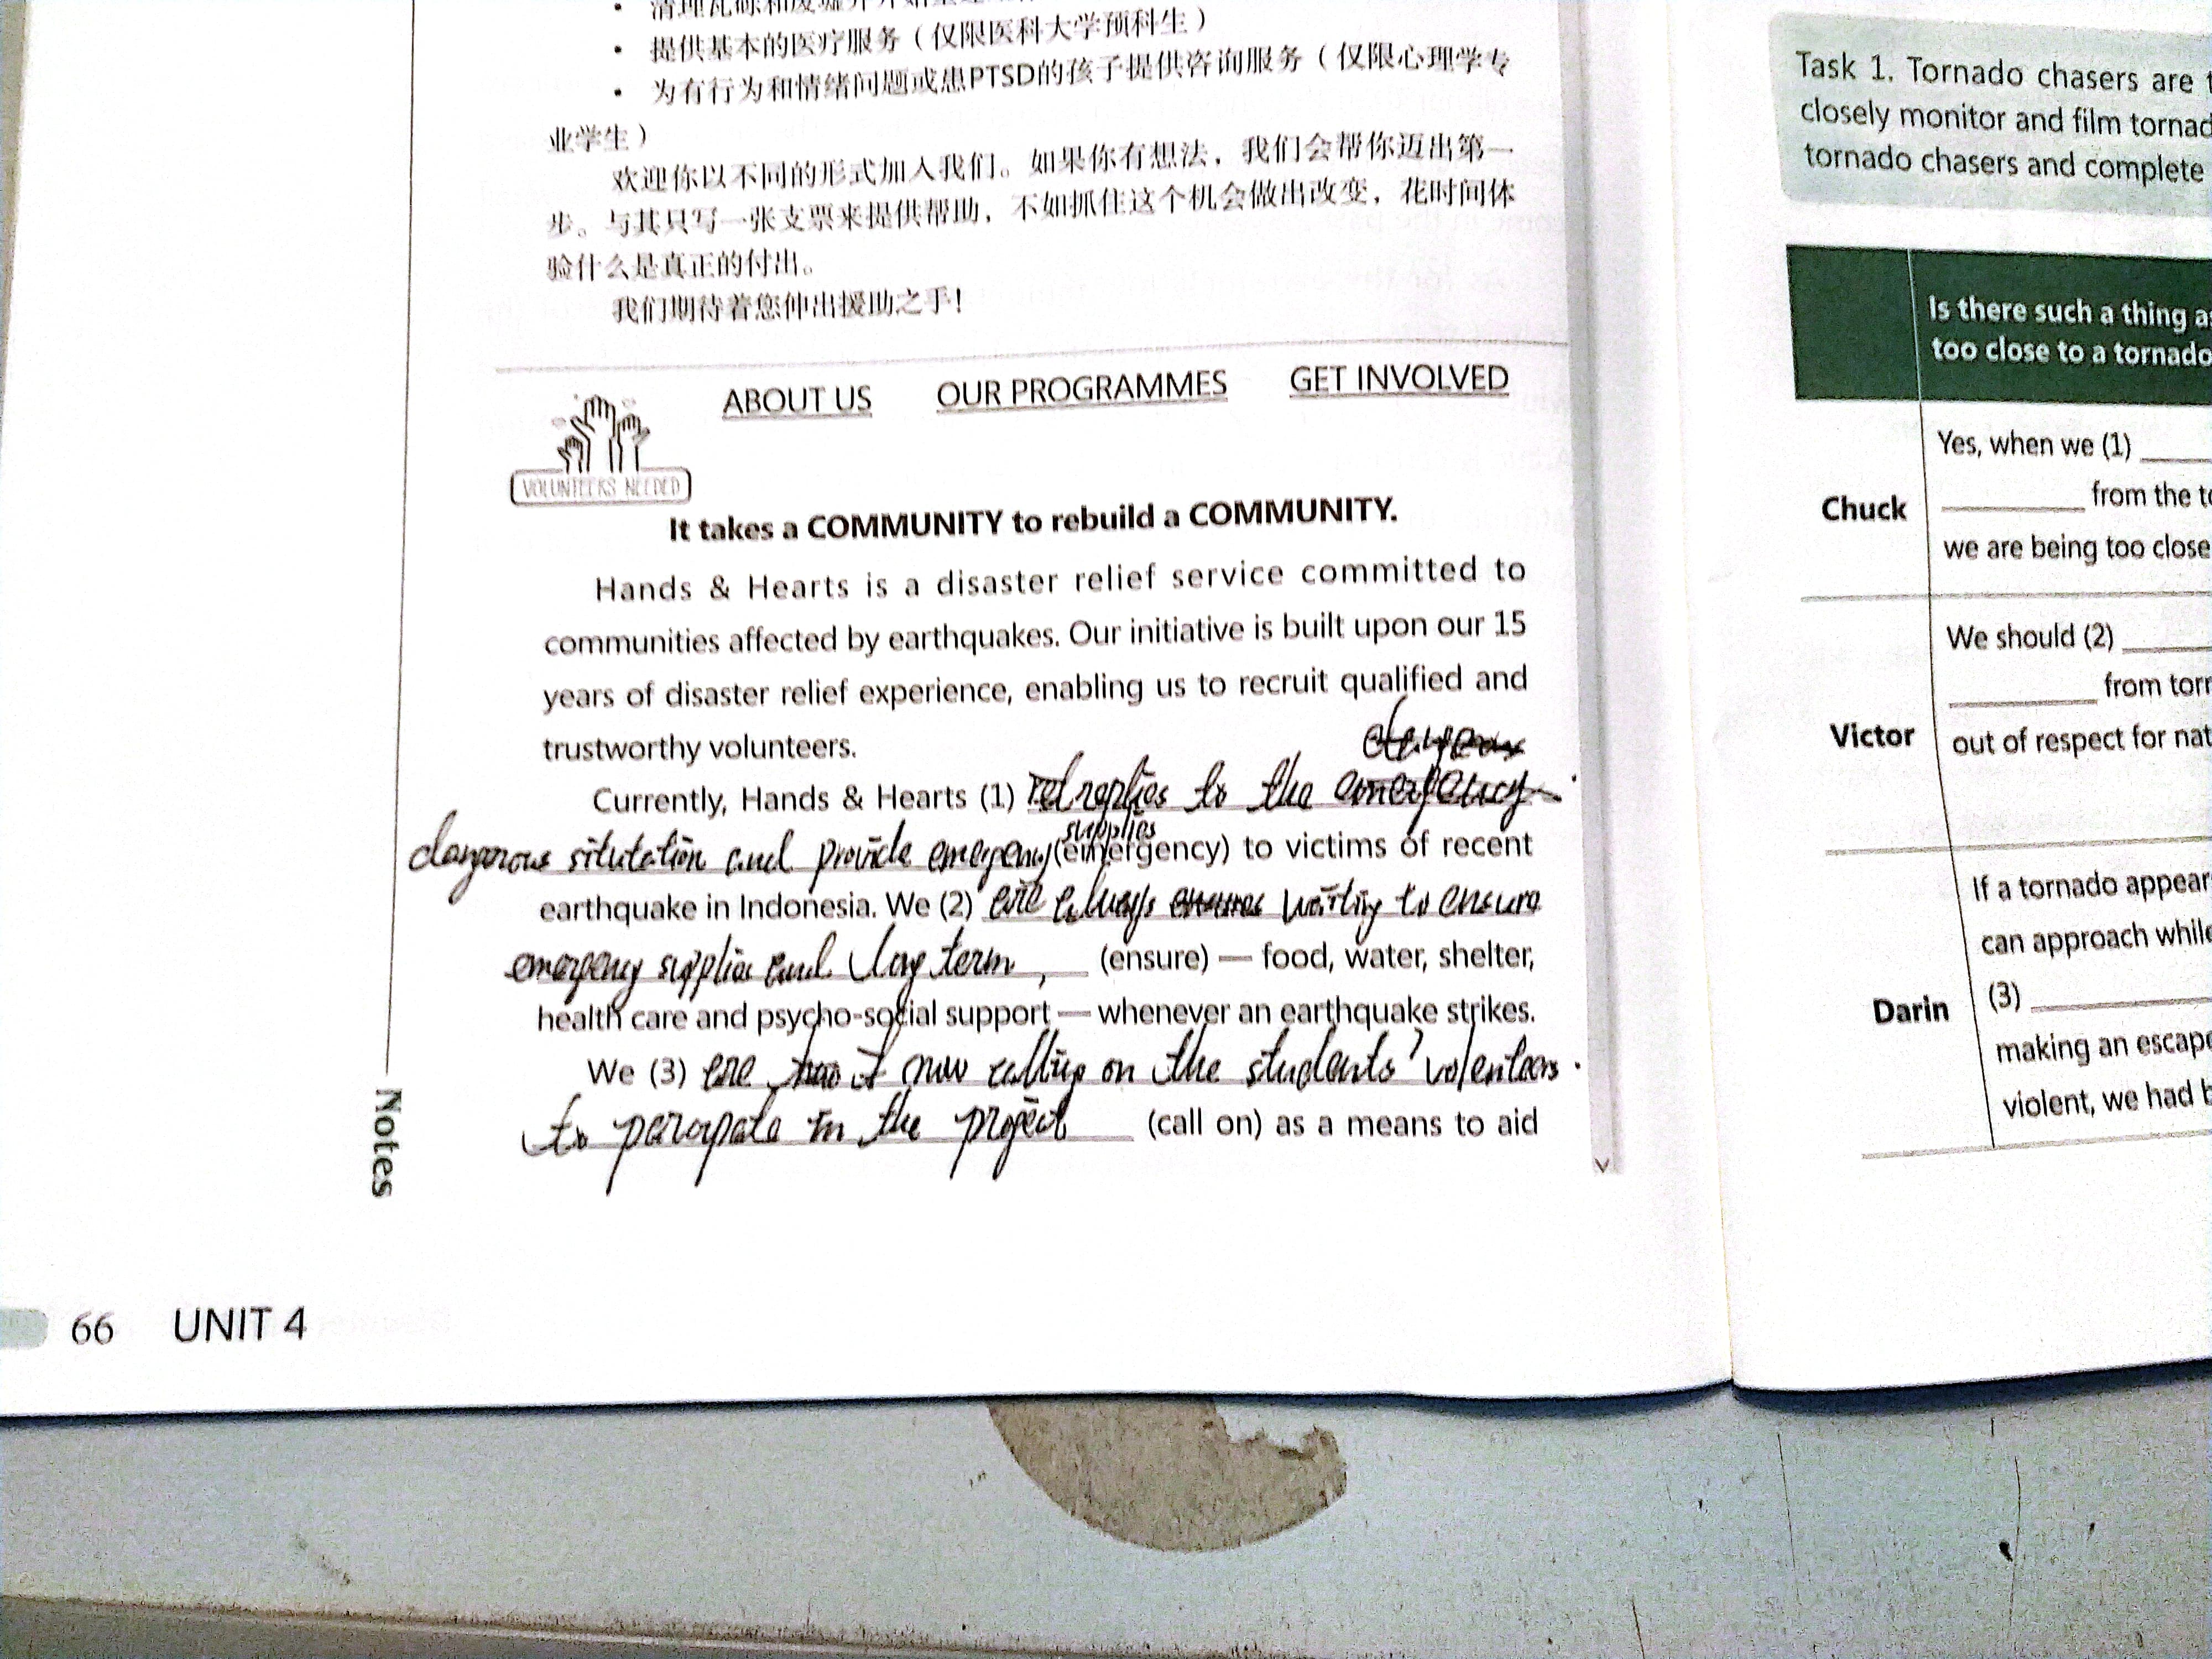 • 提供基本的医疗服务（仅限医科大学预科生）
• 为有行为和情绪问题或患PTSD的孩子提供咨询服务（仅限心理学专
业学生）
欢迎你以不同的形式加入我们。如果你有想法，我们会帮你迈出第一
步。与其只写一张支票来提供帮助，不如抓住这个机会做出改变，花时间体
验什么是真正的付出。
我们期待着您伸出援助之手！
ABOUT US OUR PROGRAMMES GET INVOLVED
VOLUNTEERS NEEDED
It takes a COMMUNITY to rebuild a COMMUNITY.
Hands & Hearts is a disaster relief service committed to
communities affected by earthquakes. Our initiative is built upon our 15
years of disaster relief experience, enabling us to recruit qualified and
trustworthy volunteers.
Currently, Hands & Hearts (1) replies to the
supplies
situtation and provide emergency (emergency) to victims of recent
earthquake in Indonesia. We (2) are always waiting to ensure
emergency supplies and long term, (ensure) — food, water, shelter,
health care and psycho-social support — whenever an earthquake strikes.
We (3) are now calling on the students' volenteers
to in the project (call on) as a means to aid
Notes
66 UNIT 4
Task 1. Tornado chasers are
closely monitor and film
tornado chasers and complete
Is there such a thing
too close to a tornado
Chuck
Yes, when we (1)
from the
we are being too close
Victor
We should (2)
from
out of respect for
Darin
If a tornado
can approach
(3)
making an
violent, we had